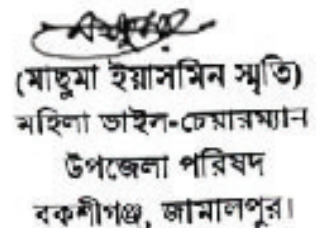 (মাছুমা ইয়াসমিন স্মৃতি)
মহিলা ভাইস-চেয়ারম্যান
উপজেলা পরিষদ
বকশীগঞ্জ, জামালপুর।